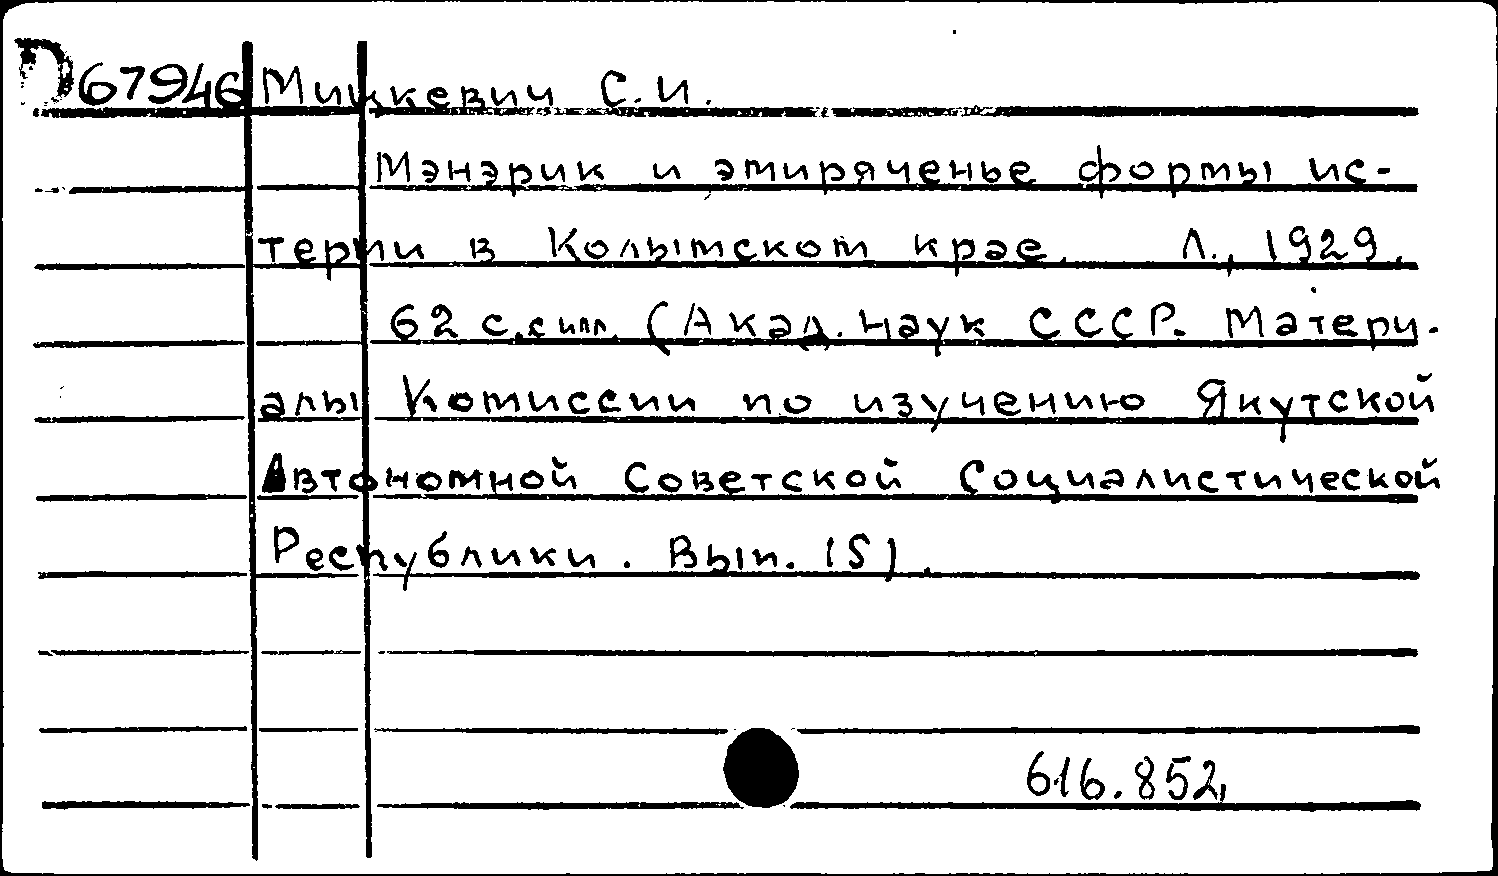 D67946 Мицкевич С.И.
Мэнэрик и эмиряченье формы ис-
терии в Колымском крае. Л., 1929.
62 с.с илл. (Акад. наук СССР. Матери-
алы Комиссии по изучению Якутской
Автономной Советской Социалистической
Республики. Вып. 15).
616.852,